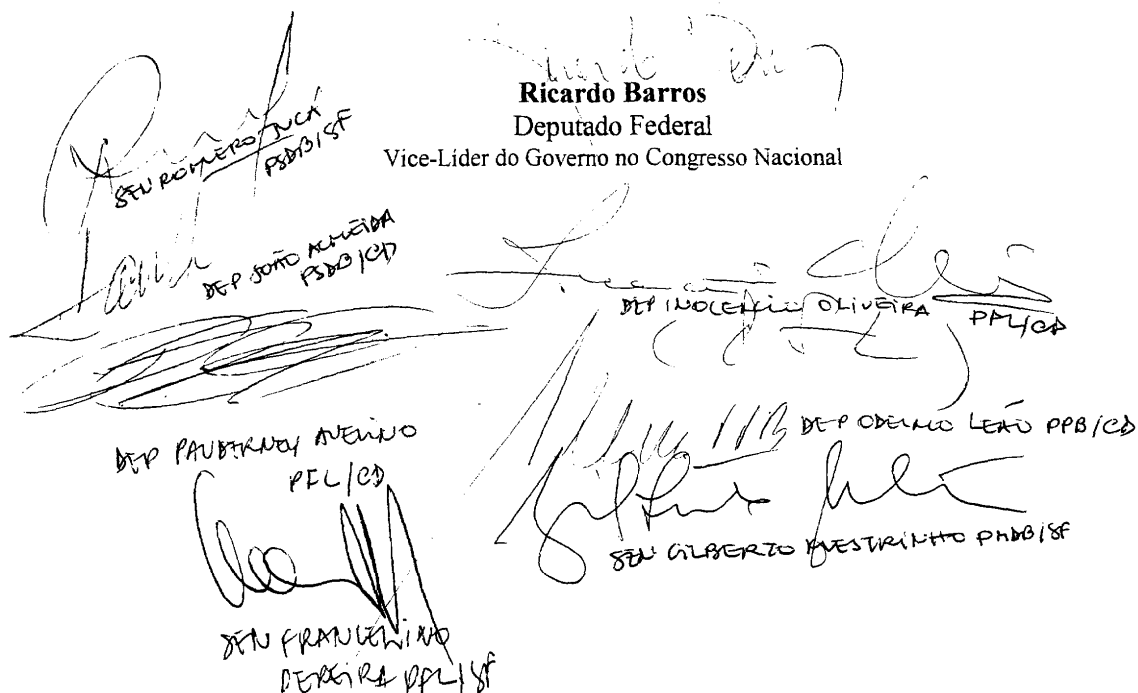 Ricardo Barros
Deputado Federal
Vice-Líder do Governo no Congresso Nacional
SEN ROMERO JUCÁ
PSDB/SF
DEP JOÃO ALMEIDA
PSDB/CD
DEP INOCENCIO OLIVEIRA PFL/CD
DEP PAUDERNEY AVELINO
PFL/CD
DEP ODELMO LEÃO PPB/CD
SEN GILBERTO MESTRINHO PMDB/SF
SEN FRANCELINO
PEREIRA PFL/SF